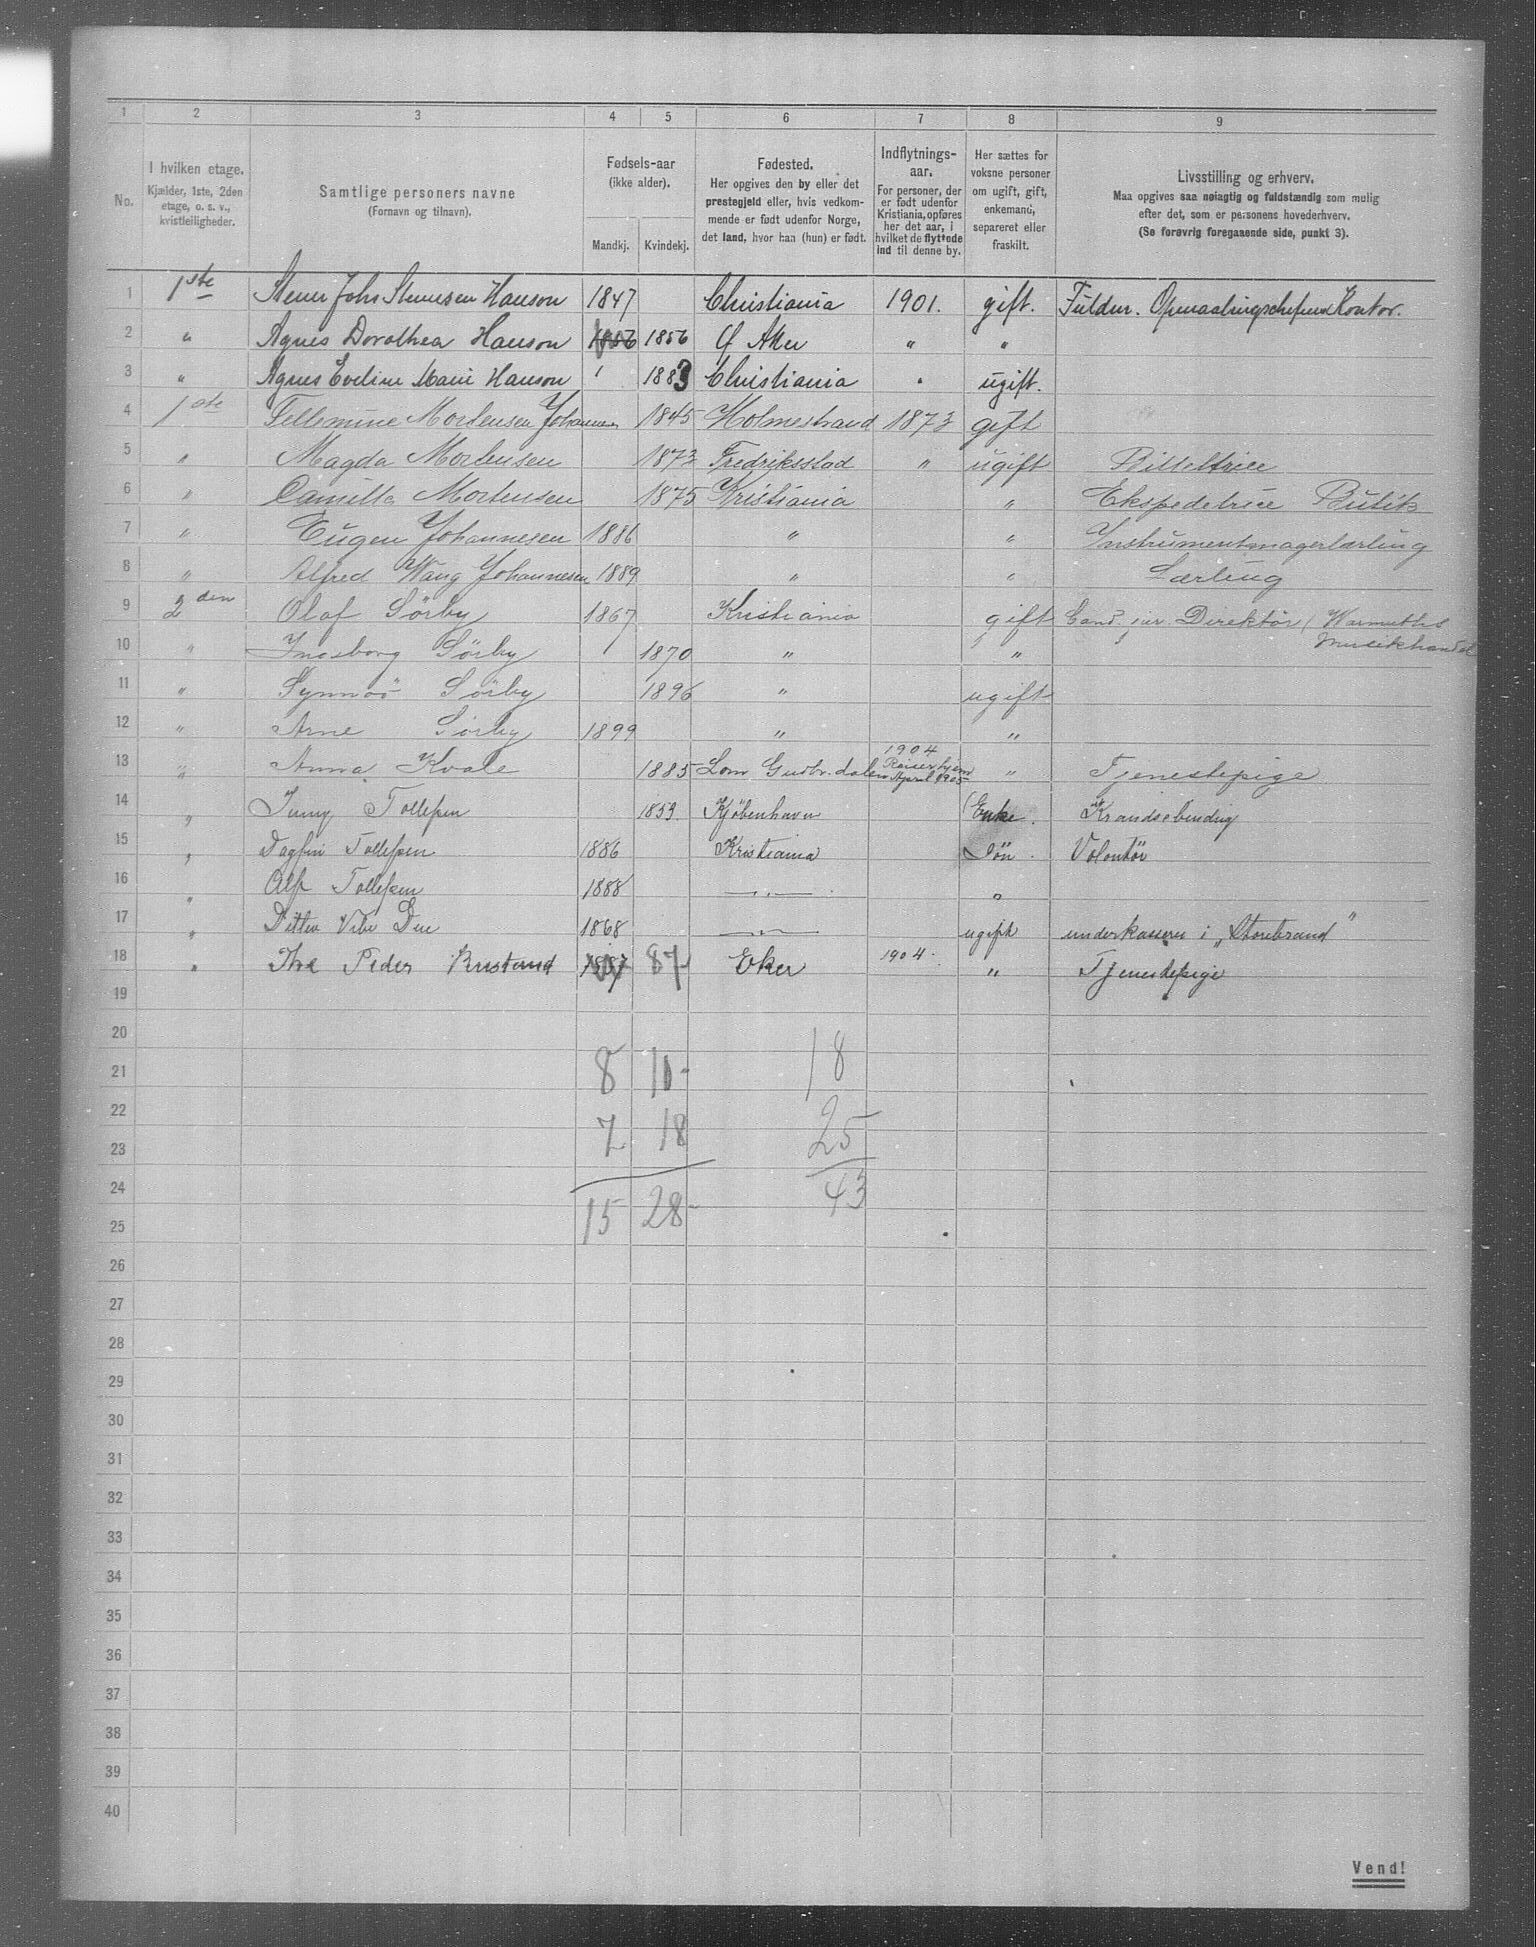 1 2 3 4 5 6 7 8 9
No.
I hvilken etage.
Kjælder, 1ste, 2den
etage, o. s. v.,
kvistleiligheder.
Samtlige personers navne
(Fornavn og tilnavn).
Fødsels-aar
(ikke alder).
Mandkj. Kvindekj.
Fødested.
Her opgives den by eller det
prestegjeld eller, hvis vedkom-
mende er født udenfor Norge,
det land, hvor han (hun) er født.
Indflytnings-
aar.
For personer, der
er født udenfor
Kristiania, opføres
her det aar, i
hvilket de flyttede
ind til denne by.
Her sættes for
voksne personer
om ugift, gift,
enkemand,
separeret eller
fraskilt.
Livsstilling og erhverv.
Maa opgives saa nøiagtig og fuldstændig som mulig
efter det, som er personens hovederhverv.
(Se forøvrig foregaaende side, punkt 3).
1 1ste Hanson 1847 Christiania 1901. gift. Kontor.
2 " Agnes Dorothea Hanson 1856 1856 Aker " "
3 " Agnes Eveline Marie Hanson ' 1883 Christiania " ugift.
4 1ste Mortensen Johannesen 1845 Holmestrand 1873 gift
5 " Magda Mortensen 1873 Fredriksstad " ugift
6 " Camilla Mortensen 1875 Kristiania " Ekspedetrice Butik
7 " Eugen Johannesen 1886 " " Instrumentmagerlærling
8 " Alfred Wang Johannesen 1889 " " Lærling
9 2den Olaf Sörby 1867 Kristiania gift Cand. jur. Direktör (Warmuths
Musikhandel
10 " Ingeborg Sörby ' 1870 " "
11 " Synnöö Sörby 1896 " ugift
12 " Arne Sörby 1899 " "
13 " Anna Kvale 1885 Lom Gudbr.dalen 1904
Reiser hjem
April 1905 " Tjenestepige
14 " Tollefsen 1859. Kjøbenhavn Enke. Krandsebinding
15 " Dagfin Tollefsen 1886 Kristiania Søn. Volontør
16 " Alf Tollefsen 1888 — " — "
17 " Ditlev Vibe 1868 — " — ugift underkasserer i „Storebrand"
18 " Peder 1887 87 Eker 1904. " Tjenestepige
19
20
21
22
23
24
25
26
27
28
29
30
31
32
33
34
35
36
37
38
39
40
8 10- 18
7 18 25
15 28- 43
Vend!